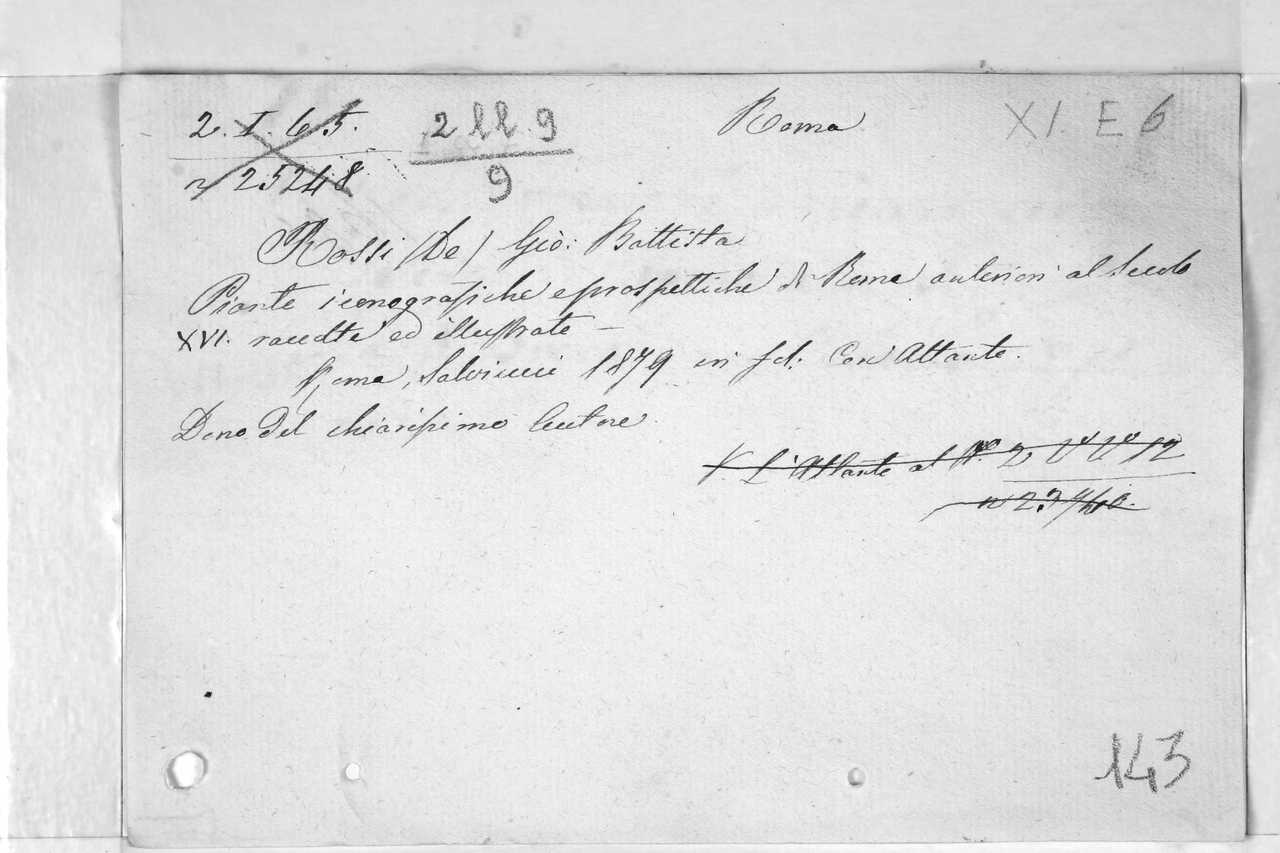 2. I. 65.
n 25248
2 ll. 9
9
Roma
XI. E 6
Rossi (De) Gio: Battista
Piante iconografiche e prospettiche di Roma anteriori al Secolo
XVI. raccolte ed illustrate –
Roma, Salviucci 1879 in fol. Con Atlante.
Dono del chiarissimo Autore
V. L'Atlante al N.º 2
143